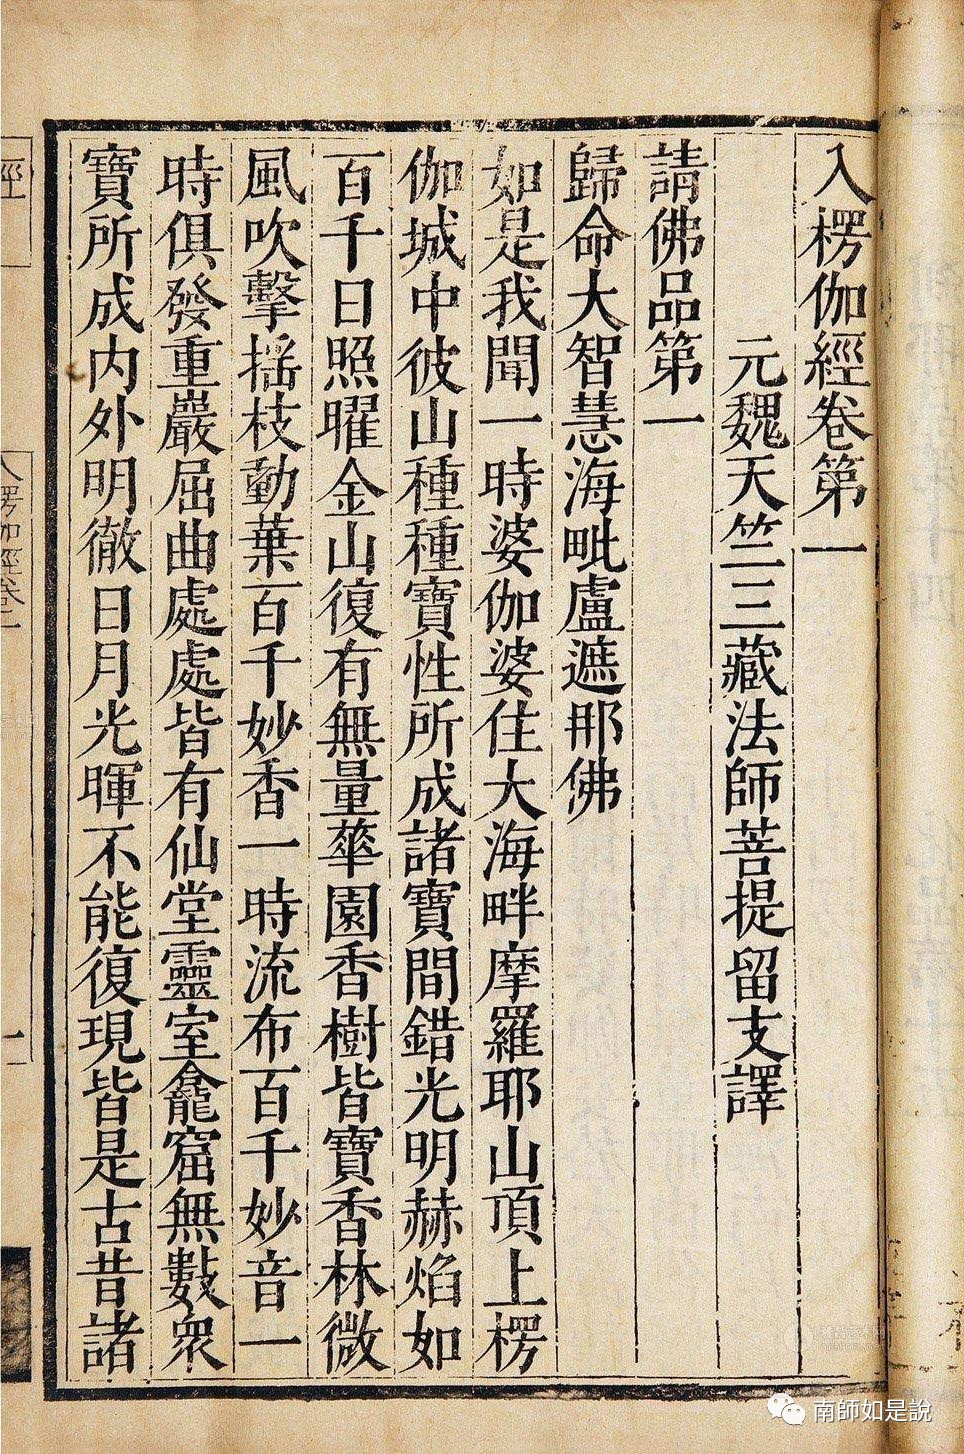 入楞伽經卷第一
元魏天竺三藏法師菩提留支譯
請佛品第一
歸命大智慧海毗盧遮那佛
如是我聞一時婆伽婆住大海畔摩羅耶山頂上楞
伽城中彼山種種寶性所成諸寶間錯光明赫焰如
百千日照曜金山復有無量華園香樹皆寶香林微
風吹擊搖枝動葉百千妙香一時流布百千妙音一
時俱發重巖屈曲處處皆有仙堂靈室龕窟無數衆
寶所成内外明徹日月光暉不能復現皆是古昔諸
經
入楞伽經卷一
一
南師如是說